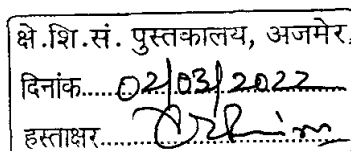 क्षे.शि.सं. पुस्तकालय, अजमेर
दिनांक......02/03/2022
हस्ताक्षर......